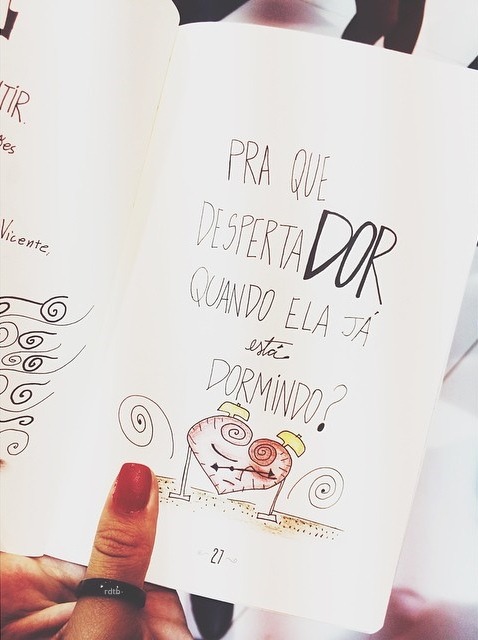 TIR.
Vicente,
PRA QUE
DESPERTADOR
QUANDO ELA JÁ
está
DORMINDO?
27
rdtb